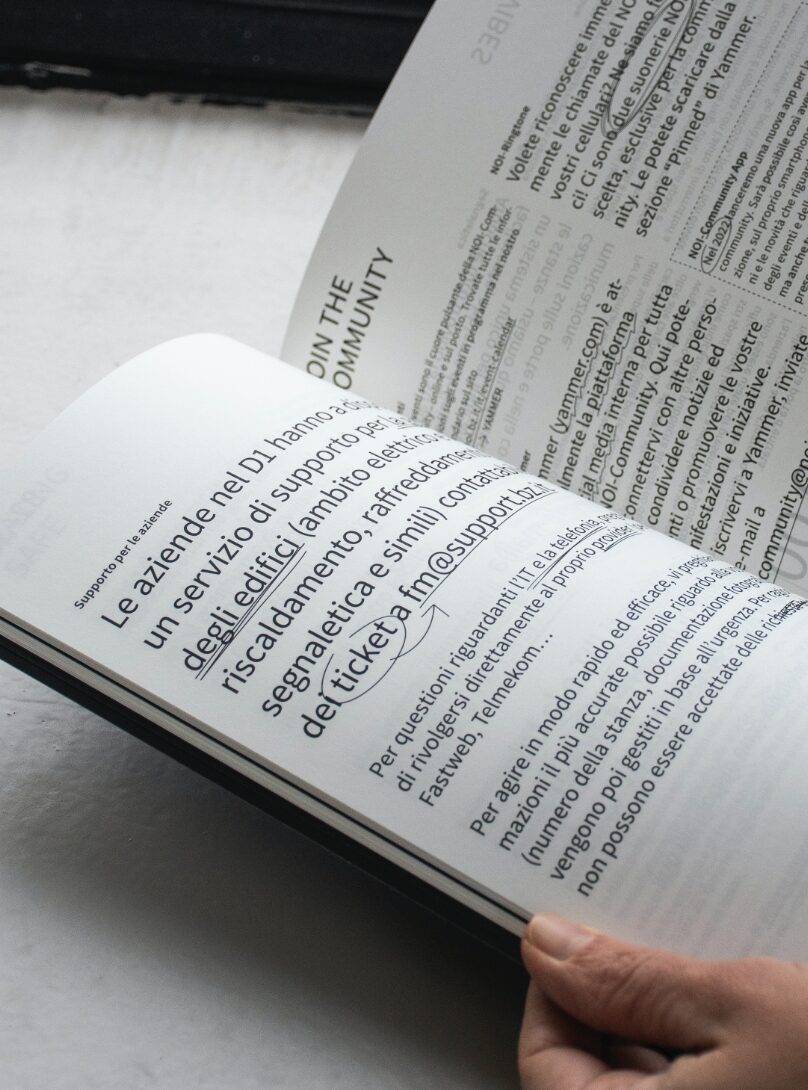 Supporto per le aziende
Le aziende nel D1 hanno a
un servizio di supporto per
degli edifici (ambito elettrico
riscaldamento, raffreddamen
segnaletica e simili)
dei ticket a fm@support.bz.it
Per questioni riguardanti l'IT e la telefonia,
di rivolgersi direttamente al proprio provider
Fastweb, Telmekom...
Per agire in modo rapido ed efficace, vi
mazioni il più accurate possibile riguardo
(numero della stanza, documentazione
vengono poi gestiti in base all'urgenza. Per
non possono essere accettate delle
OIN THE
OMMUNITY
sono il cuore pulsante della NOI Com-
online e sul posto. Trovate tutte le infor-
sugli eventi in programma nel nostro
sul sito
event calendar
YAMMER
mmer (yammer.com) è at-
lmente la piattaforma
media interna per tutta
NOI-Community. Qui pote-
onnettervi con altre perso-
condividere notizie ed
nti o promuovere le vostre
nifestazioni e iniziative.
iscrivervi a Yammer, inviate
e-mail a
community@
VIBES
NOI-Ringtone
Volete riconoscere imme
mente le chiamate del NO
vostri cellulari? Ne siamo
ci! Ci sono due suonerie NO
scelta, esclusive per la comm
nity. Le potete scaricare dalla
sezione "Pinned" di Yammer.
NOI-Community App
Nel 2022 lanceremo una nuova app per la
community. Sarà possibile così
zione, sul proprio smartphon
ni e le novità che riguar
degli eventi e del
ma anche
pres